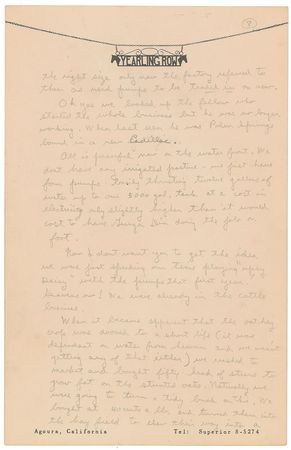 8
YEARLING ROW
the right size only now the factory referred to
them as used pumps to be traded in on new.
Oh yes we looked up the fellow who
started the whole business but he was no longer
working. When last seen he was Palm Springs
bound in a new Cadillac.
All is peaceful now on the water front. We
don't have any irrigated pasture - we just have
four pumps. Finally thrusting twelve gallons of
water up to our 5000 gal. tank at a cost in
electricity only slightly higher than it would
cost to have Gunga Din doing the job on
foot.
Now I don't want you to get the idea
we were just spending our time playing "upsy
Daisy" with the pumps that first year.
No! We were already in the cattle
business.
When it became apparent that the oat hay
crop was doomed to a short life (it was
dependent on water from heaven and we weren't
getting any of that either) we rushed to
market and bought fifty head of steers to
grow fat on the stunted oats. Naturally we
were going to turn a tidy buck on this. We
bought at 40 cents a lb. and turned them into
the hay field to chew their way into a
Agoura, California
Tel: Superior 8-5274